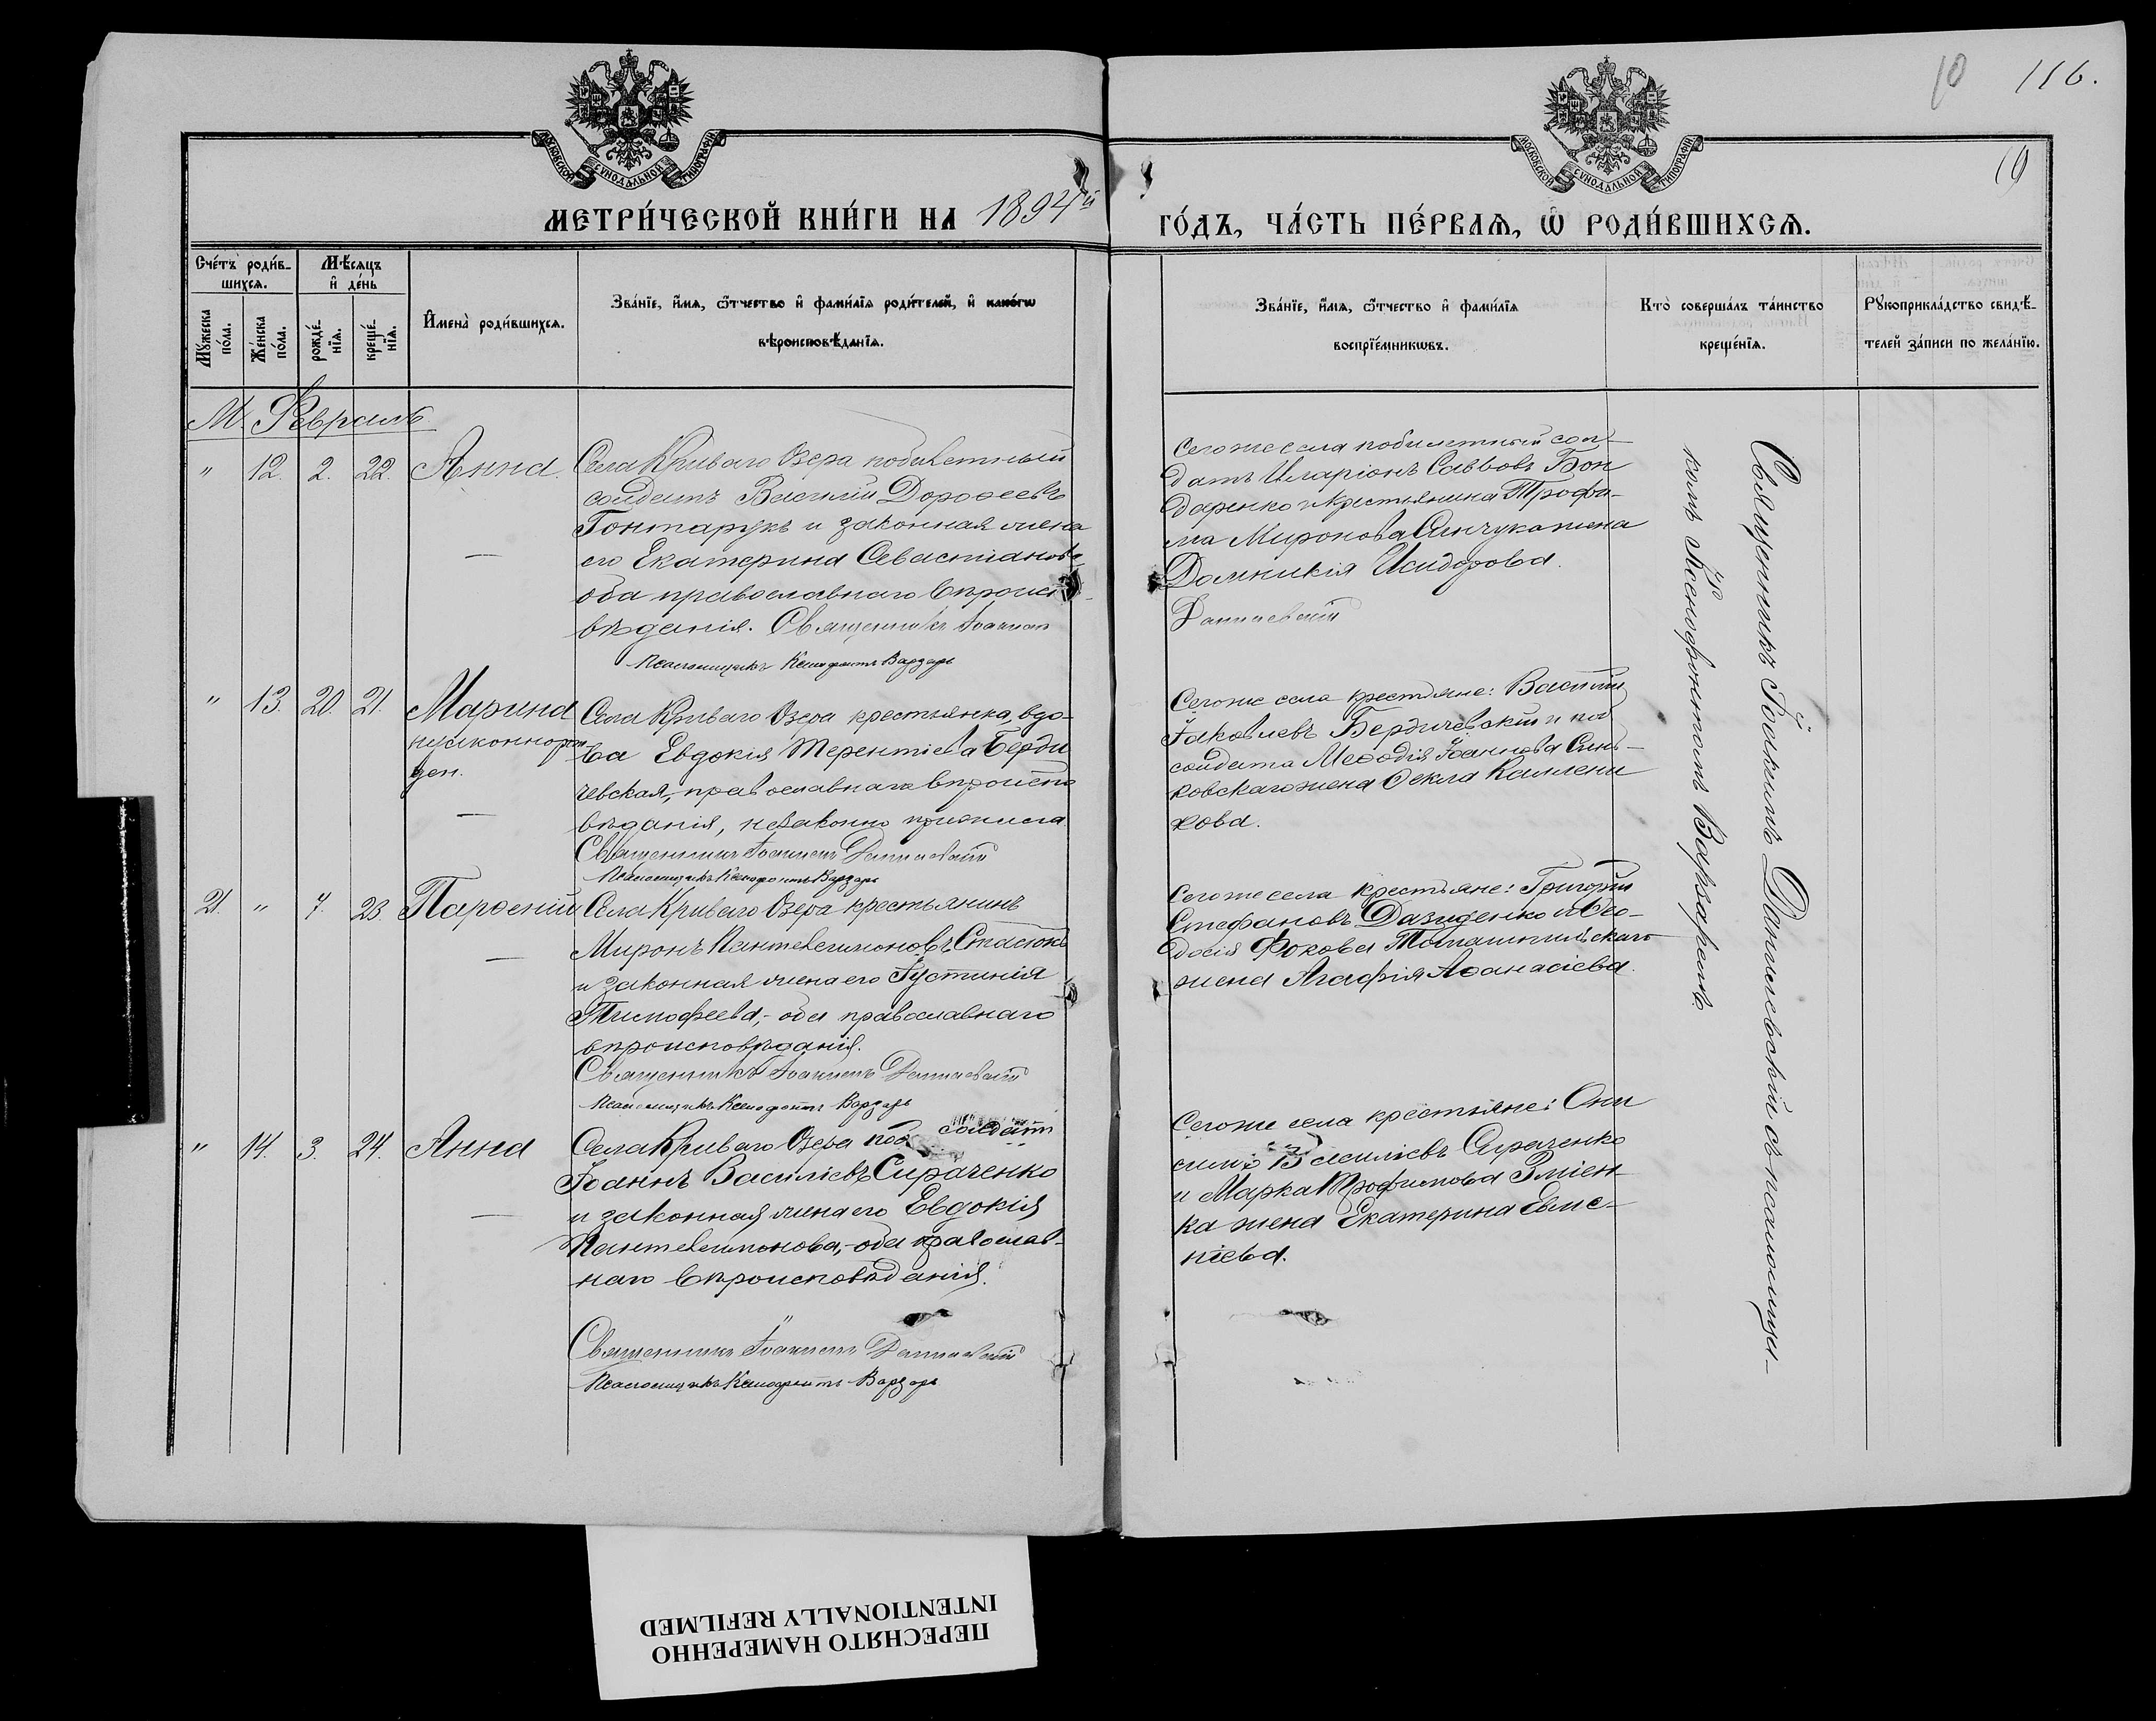 10 116.
19
МОСКОВСКОЙ СѴНОДАЛЬНОЙ ТИПОГРАФІИ
МОСКОВСКОЙ СѴНОДАЛЬНОЙ ТИПОГРАФІИ
МЕТРИ́ЧЕСКОЙ КНИ́ГИ НА 1894й
ГО́ДЪ, ЧА́СТЬ ПЕ́РВАѦ, Ѡ҆ РОДИ́ВШИХСѦ.
Сче́тъ роди́в-
шихсѧ.
Мѣ́сѧцъ
и҆ де́нь
Мꙋ́жеска
по́ла.
Же́нска
по́ла.
рожде́-
нїѧ.
креще́-
нїѧ.
И҆мена̀ роди́вшихсѧ.
Зва́нїе, и҆́мѧ, ѻ҆́тчество и҆ фами́лїѧ роди́телей, и҆ како́гѡ
вѣроисповѣ́данїѧ.
Зва́нїе, и҆́мѧ, ѻ҆́тчество и҆ фами́лїѧ
воспрїе́мникѡвъ.
Кто̀ соверша́лъ та́инство
креще́нїѧ.
Рꙋкоприкла́дство свидѣ́-
телей за́писи по жела́нїю.
М. Февраль
" 12. 2. 22. Анна.
Села Криваго Озера побилетный
солдатъ Василій Дорофеевъ
Гонтарукъ и законная жена
его Екатерина Севастіанова
оба православнаго вѣроиспо-
вѣданія. Священникъ Іоакимъ
Псаломщикъ Ксенофонтъ Варзарь
Сегоже села побилетный сол-
датъ Иларіонъ Саввовъ Бон
даренко и крестьянина Трофи-
ма Миронова жена
Домникія Исидорова.
Данилевскій
" 13. 20. 21. Марина
незаконнорож
ден.
Села Криваго Озера крестьянка, вдо-
ва Евдокія Терентіева Берди
чевская, православнаго вѣроиспо
вѣданія, незаконно прижила
Священникъ Іоакимъ Данилевскій
Псаломщикъ Ксенофонтъ Варзарь
Сегоже села крестьяне: Василій
Іаковлевъ Бердичевскій и поб
солдата Меѳодія Іоаннова Синь-
ковскаго жена Ѳекла Каллени
кова.
21. " 7. 23. Парѳеній
Села Криваго Озера крестьянинъ
Миронъ Пантелеимоновъ Стасюкъ
и законная жена его Іустинія
Тимофеева,- оба православнаго
вѣроисповѣданія.
Священникъ Іоакимъ Данилевскій
Псаломщикъ Ксенофонтъ Варзарь
Сегоже села крестьяне: Григорій
Стефановъ Давиденко и Ѳео-
досія Фокова Томашпильскаго
жена Агафія Аѳанасіева.
" 14. 3. 24. Анна
Села Криваго Озера поб. солдатъ
Іоаннъ Василіевъ Сираченко
и законная жена его Евдокія
Пантелеимонова,- оба православ-
наго вѣроисповѣданія.
Священникъ Іоакимъ Данилевскій
Псаломщикъ Ксенофонтъ Варзарь
Сегоже села крестьяне: Они
симъ Василіевъ Сираченко
и Марка Трофимова Зміен-
ка жена Екатерина Евме-
ніева.
Священникъ Іоакимъ Данилевскій съ псаломщи-
комъ Ксенофонтомъ Варзаремъ
ПЕРЕСНЯТО НАМЕРЕННО
INTENTIONALLY REFILMED